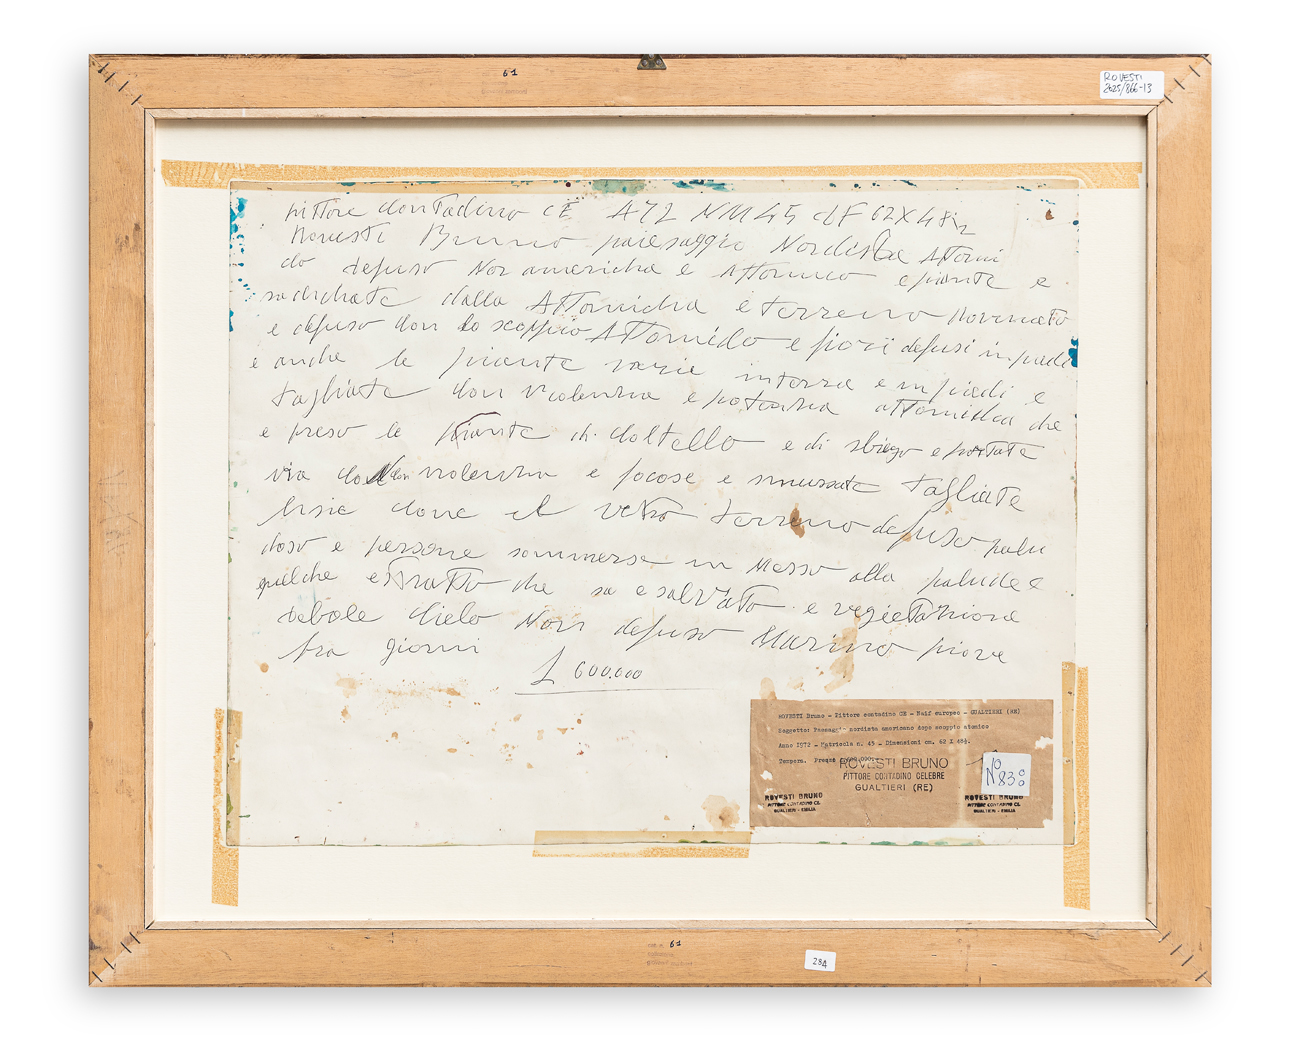 61
ROVESTI
2625/866-13
pittore contadino CE A72 NM45 CM 62X48½
Rovesti Bruno paiesaggio Nordista Attomi
co dopuso Nor americha e Attomico e piante e
radichate dalla Attomicha e terreno rovinato
e depuso con lo scoppio Attomico e fiori depusi in piedi
e anche le piante varie interra e in piedi e
tagliate con violenzia e potenzia attomicha che
e preso le piante di coltello e di sbiego e portate
via con violenzia e focose e smussate tagliate
lisie come el vetro terreno depuso palu
doso e persone sommerse in Messo alla palude e
qualche estratto che sa e salvato e vegietazzione
debole cielo Non depuso Marino piove
tra giorni
£ 600.000
ROVESTI Bruno - Pittore contadino CE - Naif europeo - GUALTIERI (RE)
Soggetto: Paesaggio nordista americano dopo scoppio atomico
Anno 1972 - Matricola n. 45 - Dimensioni cm. 62 X 48½.
Tempera. Prezzo
ROVESTI BRUNO
PITTORE CONTADINO CELEBRE
GUALTIERI (RE)
N° 830
ROVESTI BRUNO
PITTORE CONTADINO CE.
GUALTIERI - EMILIA
ROVESTI BRUNO
PITTORE CONTADINO CE.
GUALTIERI - EMILIA
61
284